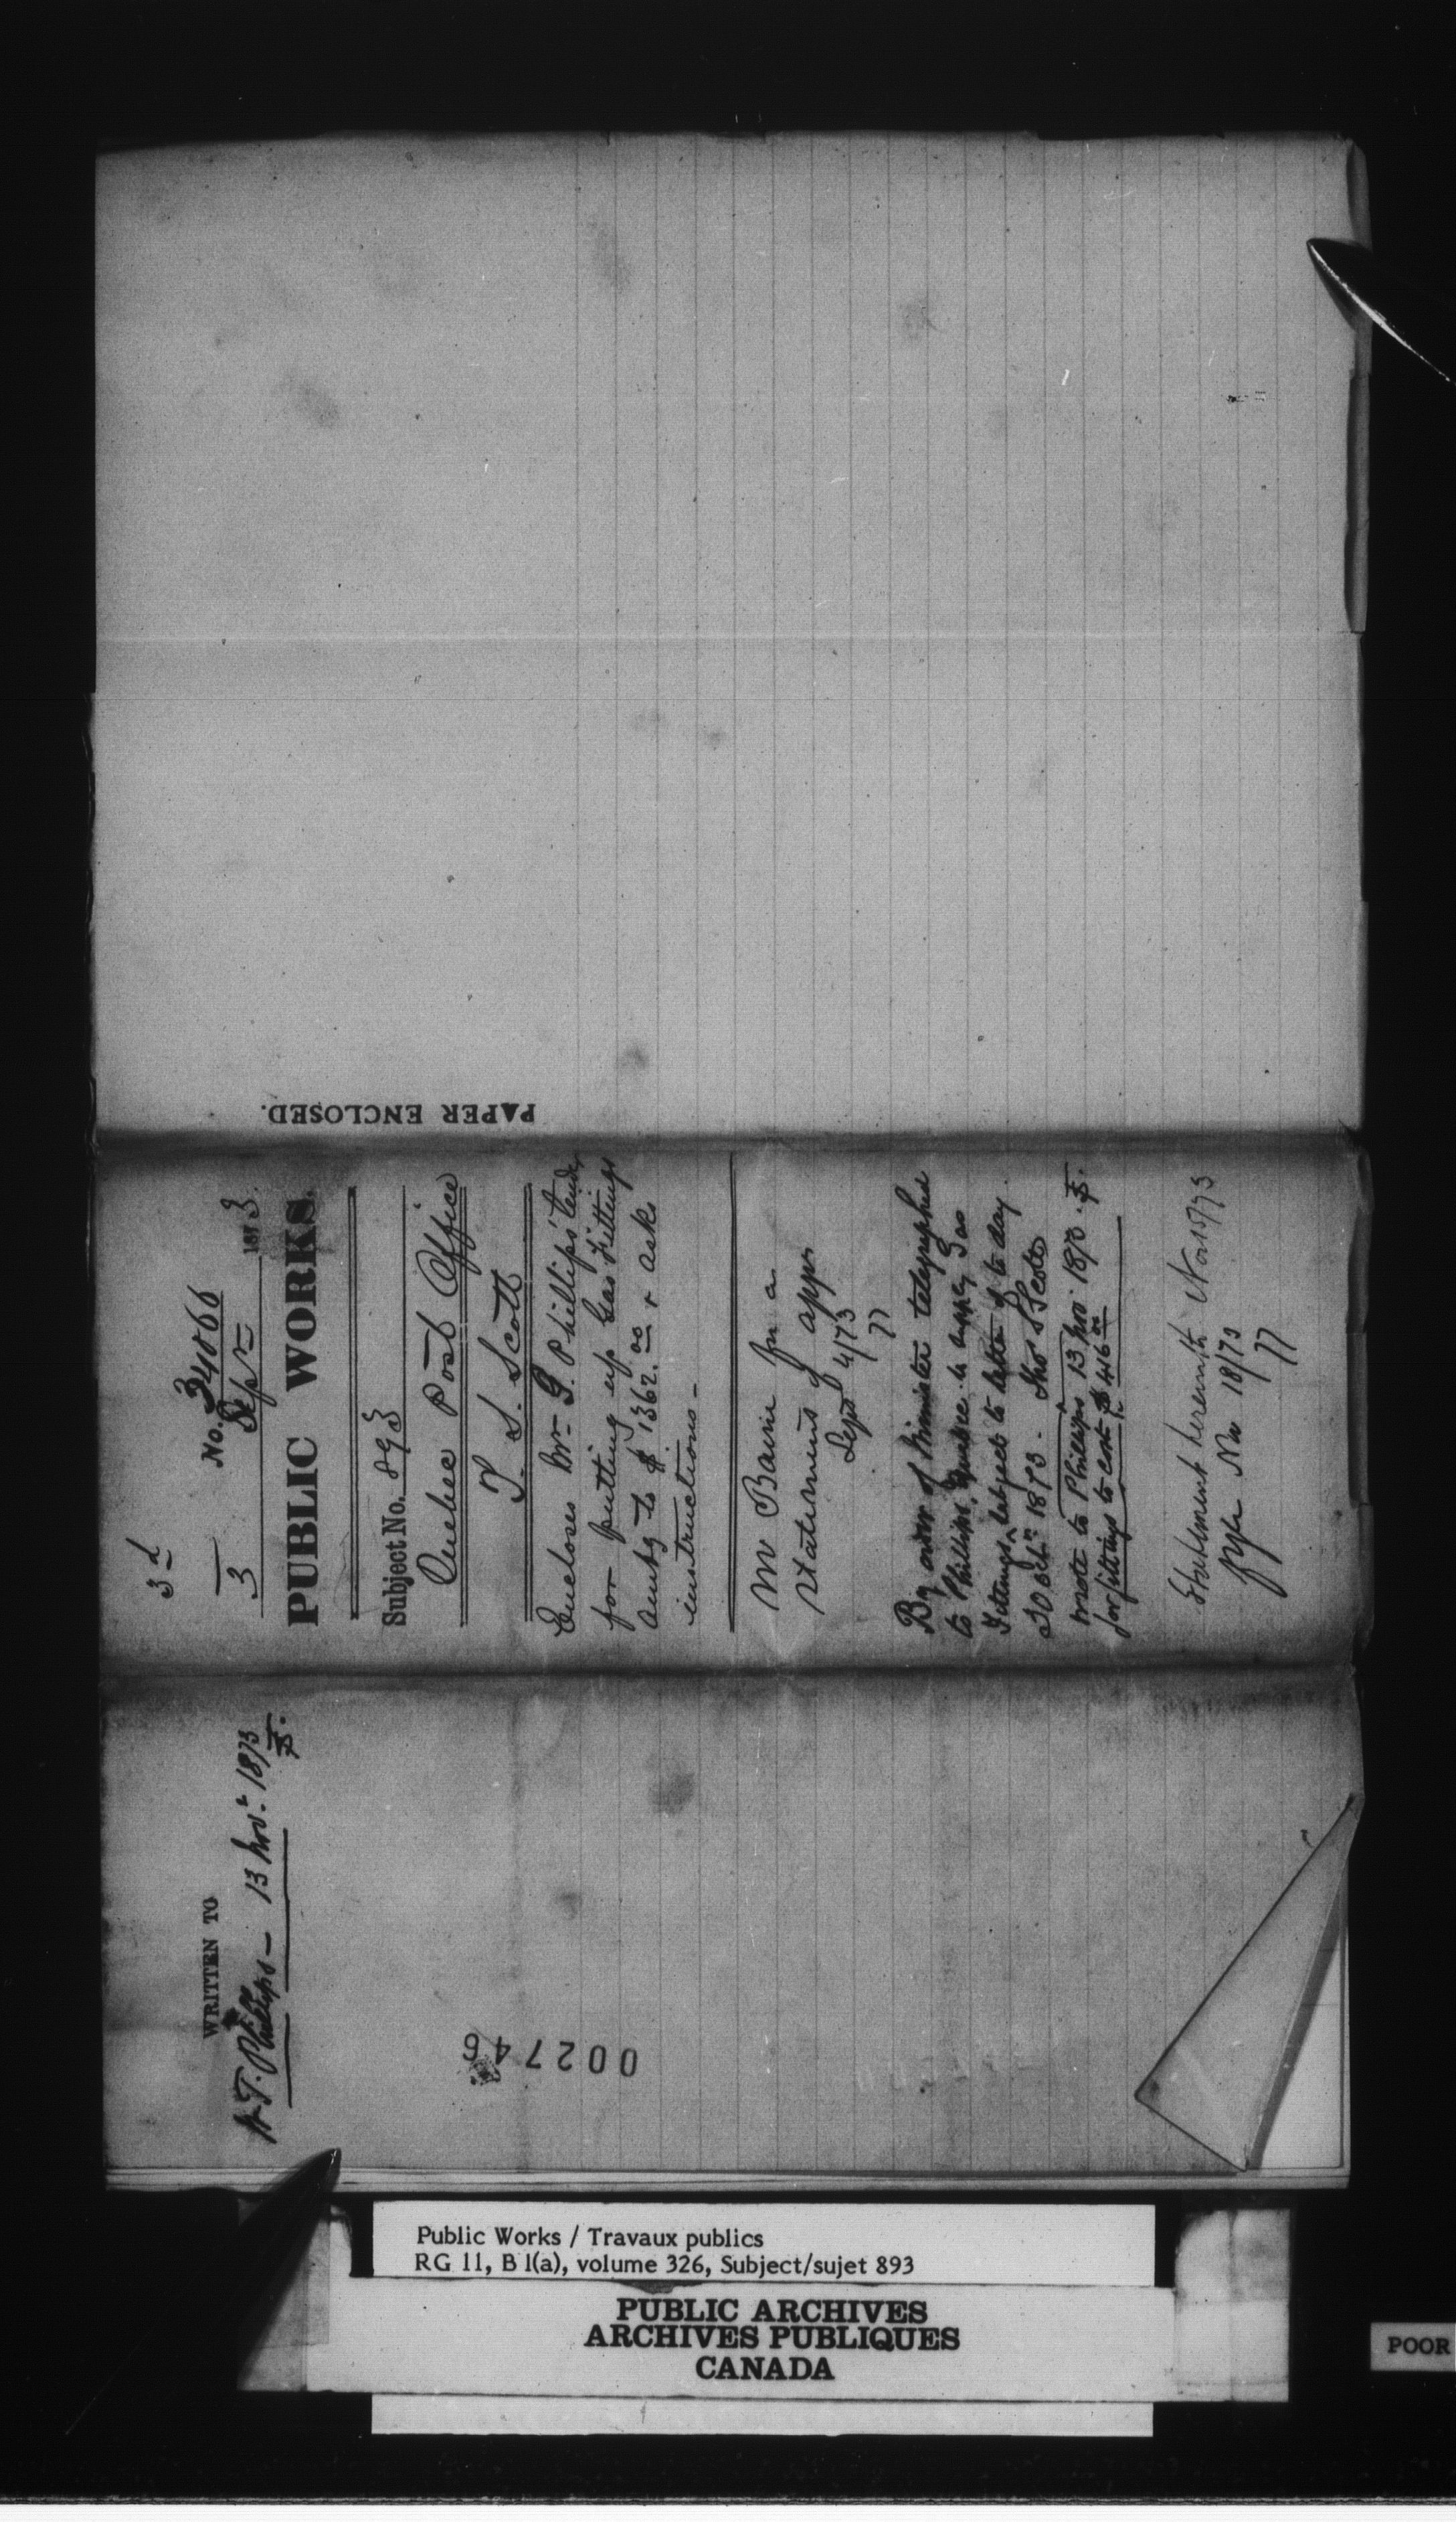 3d
3 No. 34066
Sepr 1873.
PUBLIC WORKS.
Subject No. 893
Quebec Post Office
T. S. Scott
Encloses Mr G. Phillips' tender
for putting up Gas Fittings
amtg to $1362.00 & asks
instructions -
Mr Baine for a
statement of appr
Sept 4/73
By order of Minister telegraphed
to Phillips, Quebec to supply Gas
Fittings, subject to letter of to day.
30 Octr 1873 - Thos S Scott
wrote to Phillips 13 Nov 1873
for fittings to cost $416.00
Statement herewith Nov 15/73
Nov 18/73
PAPER ENCLOSED.
WRITTEN TO
Phillips - 13 Nov. 1873
002746
Public Works / Travaux publics
RG 11, B 1(a), volume 326, Subject/sujet 893
PUBLIC ARCHIVES
ARCHIVES PUBLIQUES
CANADA
POOR